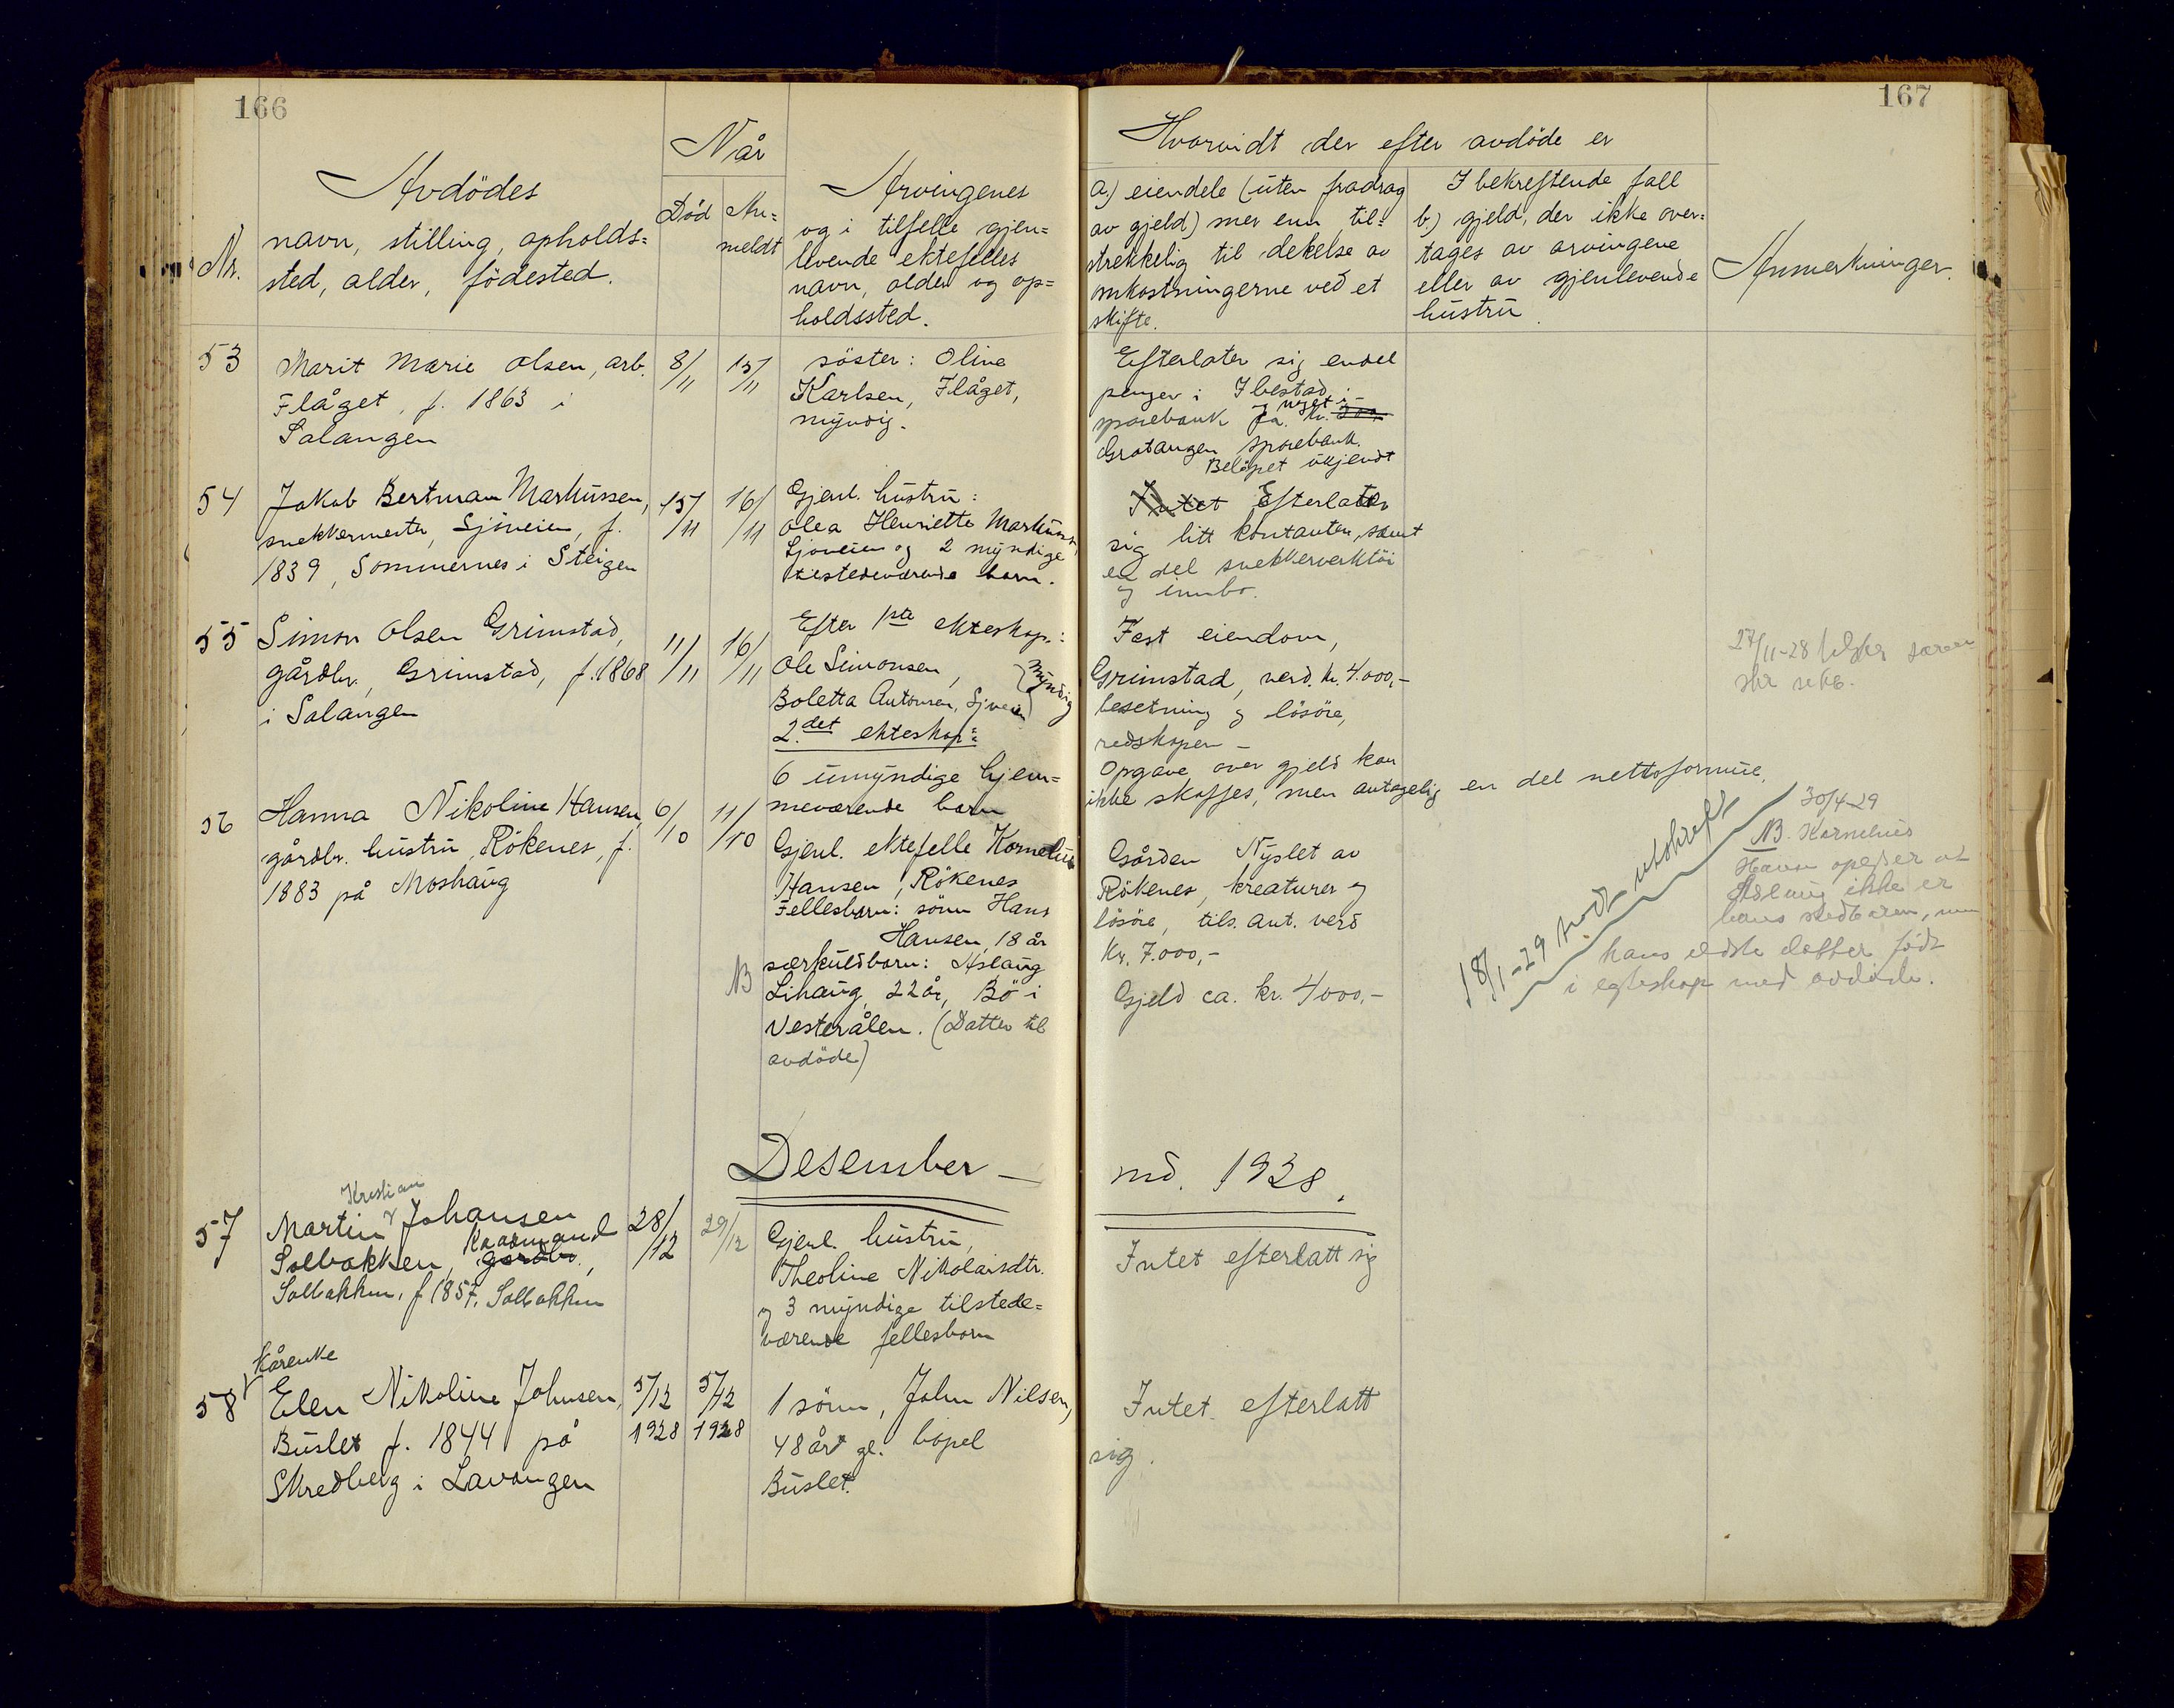 166
Når
Avdödes
navn, stilling, opholds=
sted, alder, födested.
Nr.
Död
An=
meldt
Arvingenes
og i tilfelle gjen=
levende ektefelles
navn, alder og op=
holdssted.
53
Marit Marie Olsen, arb.
Flåget, f. 1863 i
Salangen
8/11
15/11
söster: Oline
Karlsen, Flåget,
myndig.
54
Jakob Bertman Markussen,
snekkermester, Sjöveien, f.
1839, Sommernes i Steigen
15/11
16/11
Gjenl. hustru:
Olea Henriette Markussen,
Sjöveien og 2 myndige
tilstedeværende barn.
55
Simon Olsen Grimstad,
gårdbr., Grimstad, f. 1868
i Salangen
11/11
16/11
Efter 1ste ekteskap.:
Ole Simonsen,
Boletta Antonsen, Sjöveien
myndig
2.det ekteskap:
6 umyndige hjem=
meværende barn
56
Hanna Nikoline Hansen,
gårdbr. hustru, Rökenes, f.
1883 på Moshaug
6/10
11/10
Gjenl. ektefelle Kornelius
Hansen, Rökenes
Fellesbarn: sönn Hans
Hansen, 18 år
særkuldbarn: Aslaug
NB
Lihaug, 22 år, Bö i
Vesterålen. (Datter til
avdöde)
Desember –
57
Kristian
Martin Johansen
Solbakken, Kaarmand gardbr.,
Solbakken, f 1857, Solbakken
28/12
29/12
Gjenl. hustru,
Theoline Nikolaisdtr.
og 3 myndige tilstede=
værende fellesbarn
Kårenke
58
Elen Nikoline Johnsen,
Buslet f. 1844 på
Skredberg i Lavangen
5/12
1928
5/12
1928
1 sönn, John Nilsen,
48 år gl. bopel
Buslet.
167
Hvorvidt der efter avdöde er
a) eiendele (uten fradrag
av gjeld) mer enn til=
strekkelig til dekelse av
omkostningerne ved et
skifte.
I bekreftende fall
b) gjeld, der ikke over=
tages av arvingene
eller av gjenlevende
hustru.
Anmerkninger.
Efterlater sig endel
penger i Ibestad
og noget i
sparebank ca. kr. 300,-
Gratangen sparebank.
Belöpet ukjendt
Intet Efterlater
sig litt kontanter, samt
en del snekkerverktöi
og innbo.
Fast eiendom,
Grimstad, verd. kr. 4.000,-
besetning og lösöre,
redskapen –
Opgave over gjeld kan
ikke skaffes, men antagelig en del nettoformue.
27/11-28
Gården Nyslet av
Rökenes, kreaturer og
lösöre, tils. ant. verd
Kr. 7.000,-
Gjeld ca. kr. 4000,-
18/1-29 utskrift
30/4-29
NB. Kornelius
Hansen opgiver at
Aslaug ikke er
hans stedbarn, men
hans eldste datter födt
i egteskap med avdöde.
md. 1928.
Intet efterlatt sig
Intet efterlatt
sig.